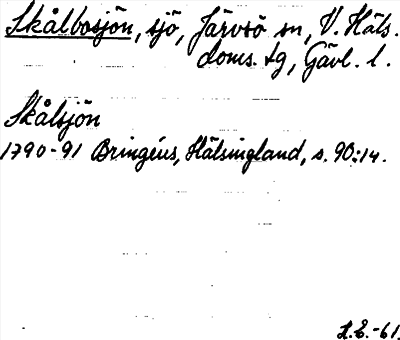 Skålbosjön, sjö, Järvsö sn, V. Häls.
doms. tg, Gävl. l.
Skålsjön
1790-91 Bringéus, Hälsingland, s. 90:14.
H.E.-61.